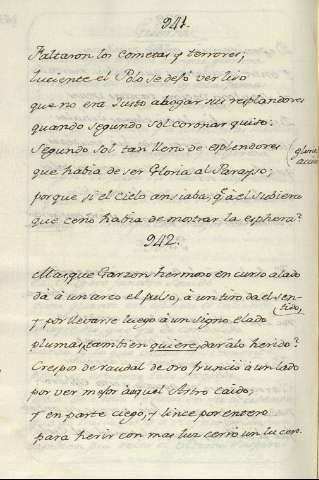 241.
Faltaron los cometas y terrores;
luciente el Polo se dejó ver liso
que no era Justo ahogar sus resplandores
quando segundo sol coronar quiso:
Segundo sol tan lleno de esplendores
que havia de ser Gloria al Parayso;
gloria
porque si el cielo ansiaba, qͤ à el subiera
que ceño havia de mostrar la esphera?
942.
Mas, que Garzon hermoso en curso alado
dà à un arco el pulso, à un tiro da el sen-
tido,
y por llevarse luego à un signo el lado
plumas, tambien quiere, dar alo herido?
Crespo de raudal de oro frunció à un lado
por ver mejor aquel Astro caido;
y en parte ciego, y lince por entero
para herir con mas luz cerró un lucero.